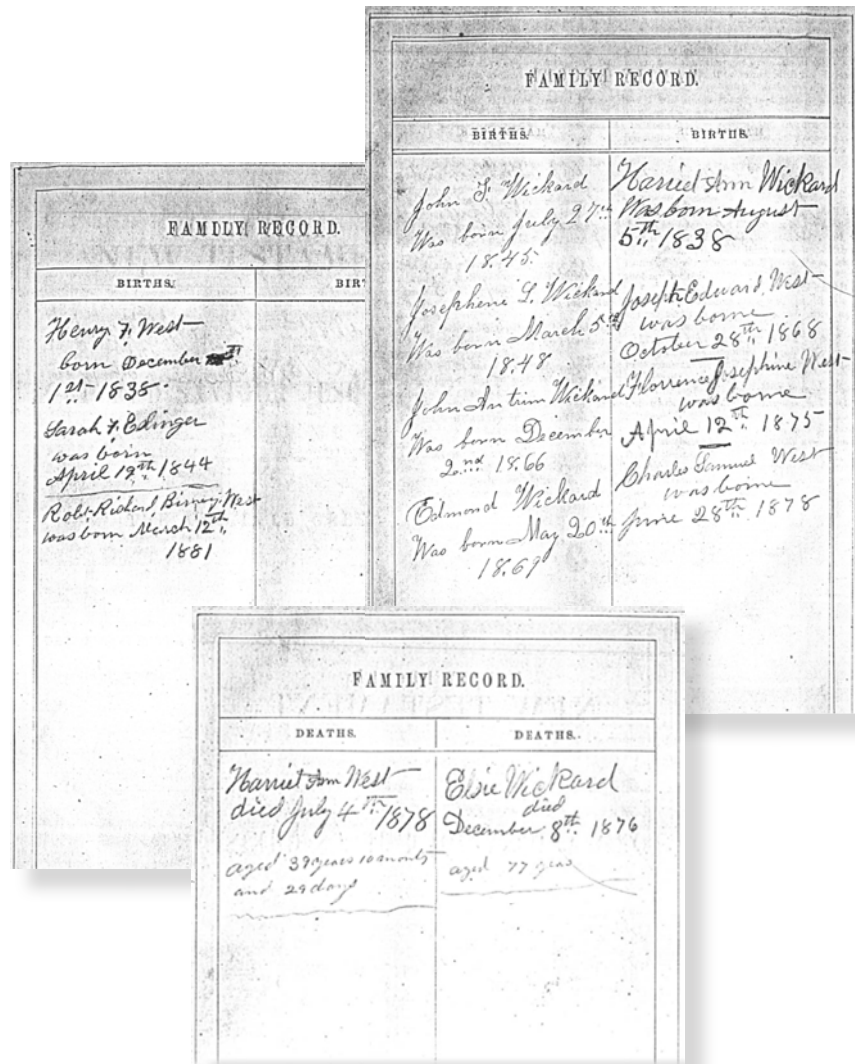 FAMILY RECORD.
BIRTHS.
BIRT
Henry F. West
born December
1st 1838.
Sarah F. Edinger
was born
April 19th 1844
Robt Richard Birney West
was born March 12th
1881
FAMILY RECORD.
BIRTHS.
BIRTHS.
John S. Wickard
Was born July 27th
1845.
Josephene S. Wickard
Was born March 5th
1848
John Antrim Wickard
Was born December
2nd 1866
Edmond Wickard
Was born May 20th
1869
Harriet Ann Wickard
Was born August
5th 1838
Joseph Edward West
was borne
October 28th 1868
Florrence Josephine West
was borne
April 12th 1875
Charles Samuel West
was borne
June 28th 1878
FAMILY RECORD.
DEATHS.
DEATHS.
Harriet Ann West
died July 4th 1878
aged 39 years 10 months
and 29 days
Elsie Wickard
died
December 8th 1876
aged 77 years